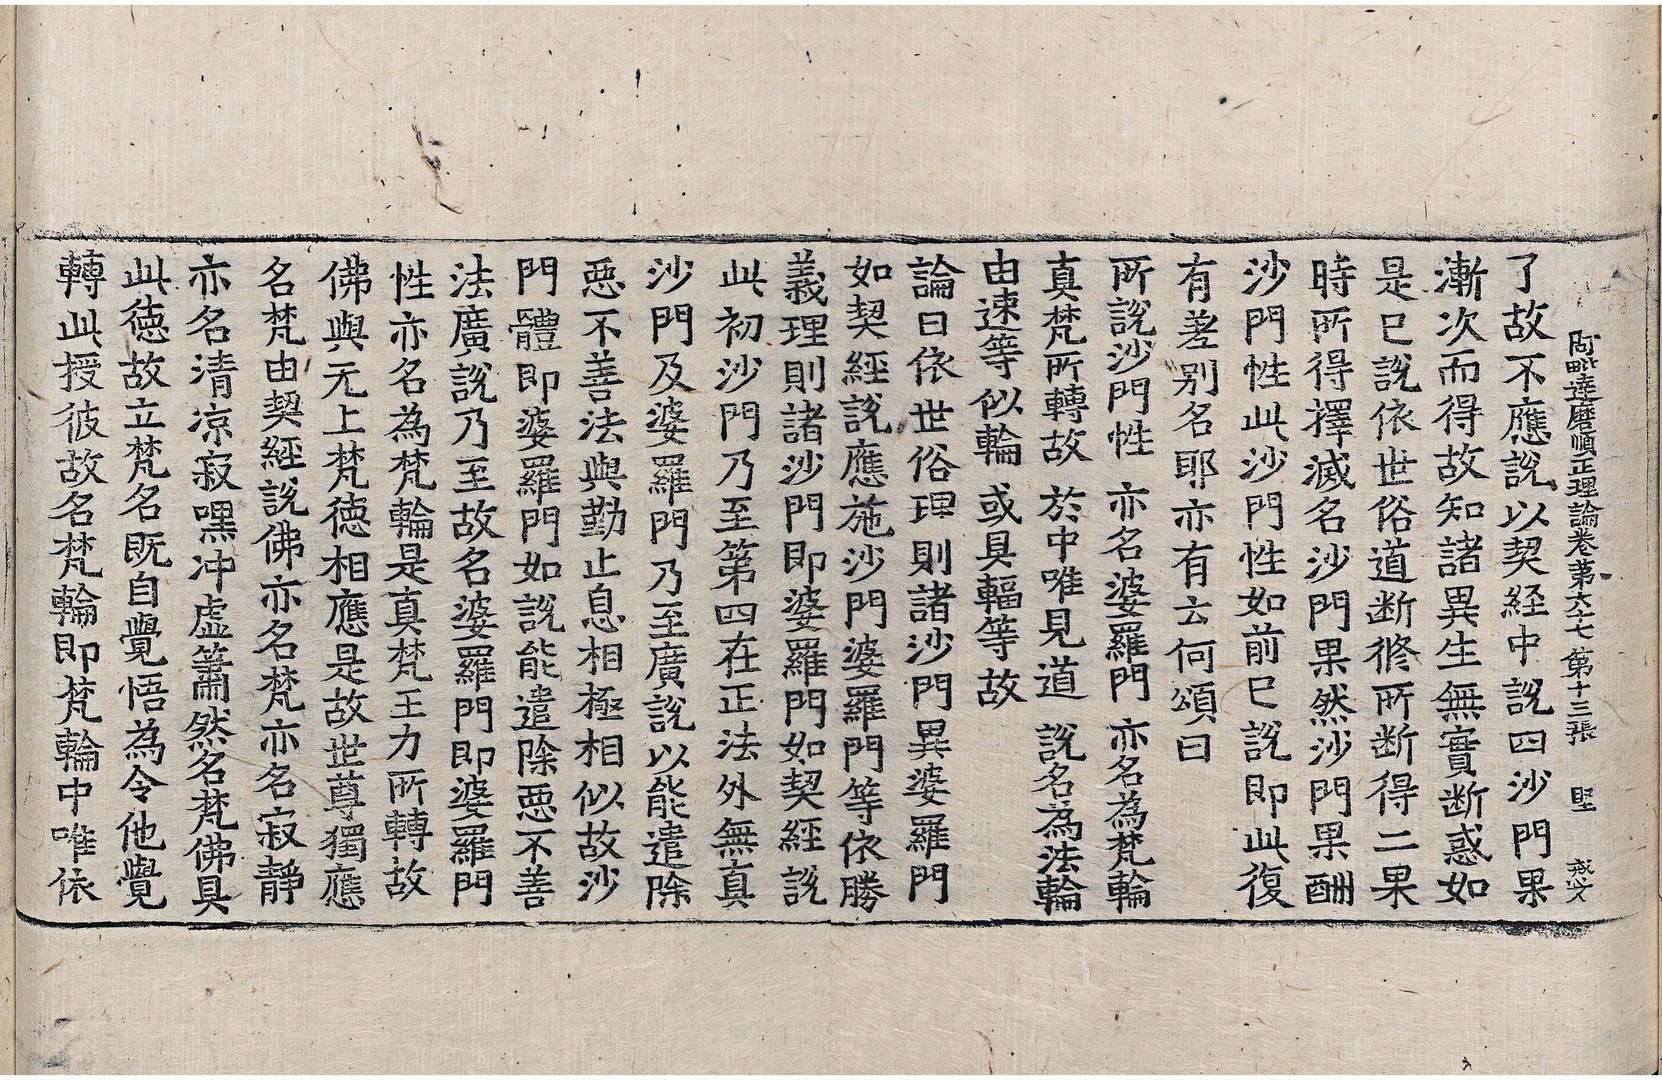 阿毗達磨順正理論卷第六十七 第十三張 堅
了故不應說以契経中說四沙門果
漸次而得故知諸異生無實断惑如
是已說依世俗道断修所断得二果
時所得擇滅名沙門果然沙門果酬
沙門性此沙門性如前已說即此復
有差别名耶亦有云何頌曰
所說沙門性 亦名婆羅門 亦名為梵輪
真梵所轉故 於中唯見道 說名為法輪
由速等似輪 或具輻等故
論曰依世俗理則諸沙門異婆羅門
如契經說應施沙門婆羅門等依勝
義理則諸沙門即婆羅門如契經說
此初沙門乃至第四在正法外無真
沙門及婆羅門乃至廣說以能遣除
惡不善法與勤止息相極相似故沙
門體即婆羅門如說能遣除惡不善
法廣說乃至故名婆羅門即婆羅門
性亦名為梵輪是真梵王力所轉故
佛與无上梵徳相應是故世尊獨應
名梵由契經說佛亦名梵亦名寂靜
亦名清凉寂嘿冲虚簫然名梵佛具
此徳故立梵名既自覺悟為令他覺
轉此授彼故名梵輪即梵輪中唯依